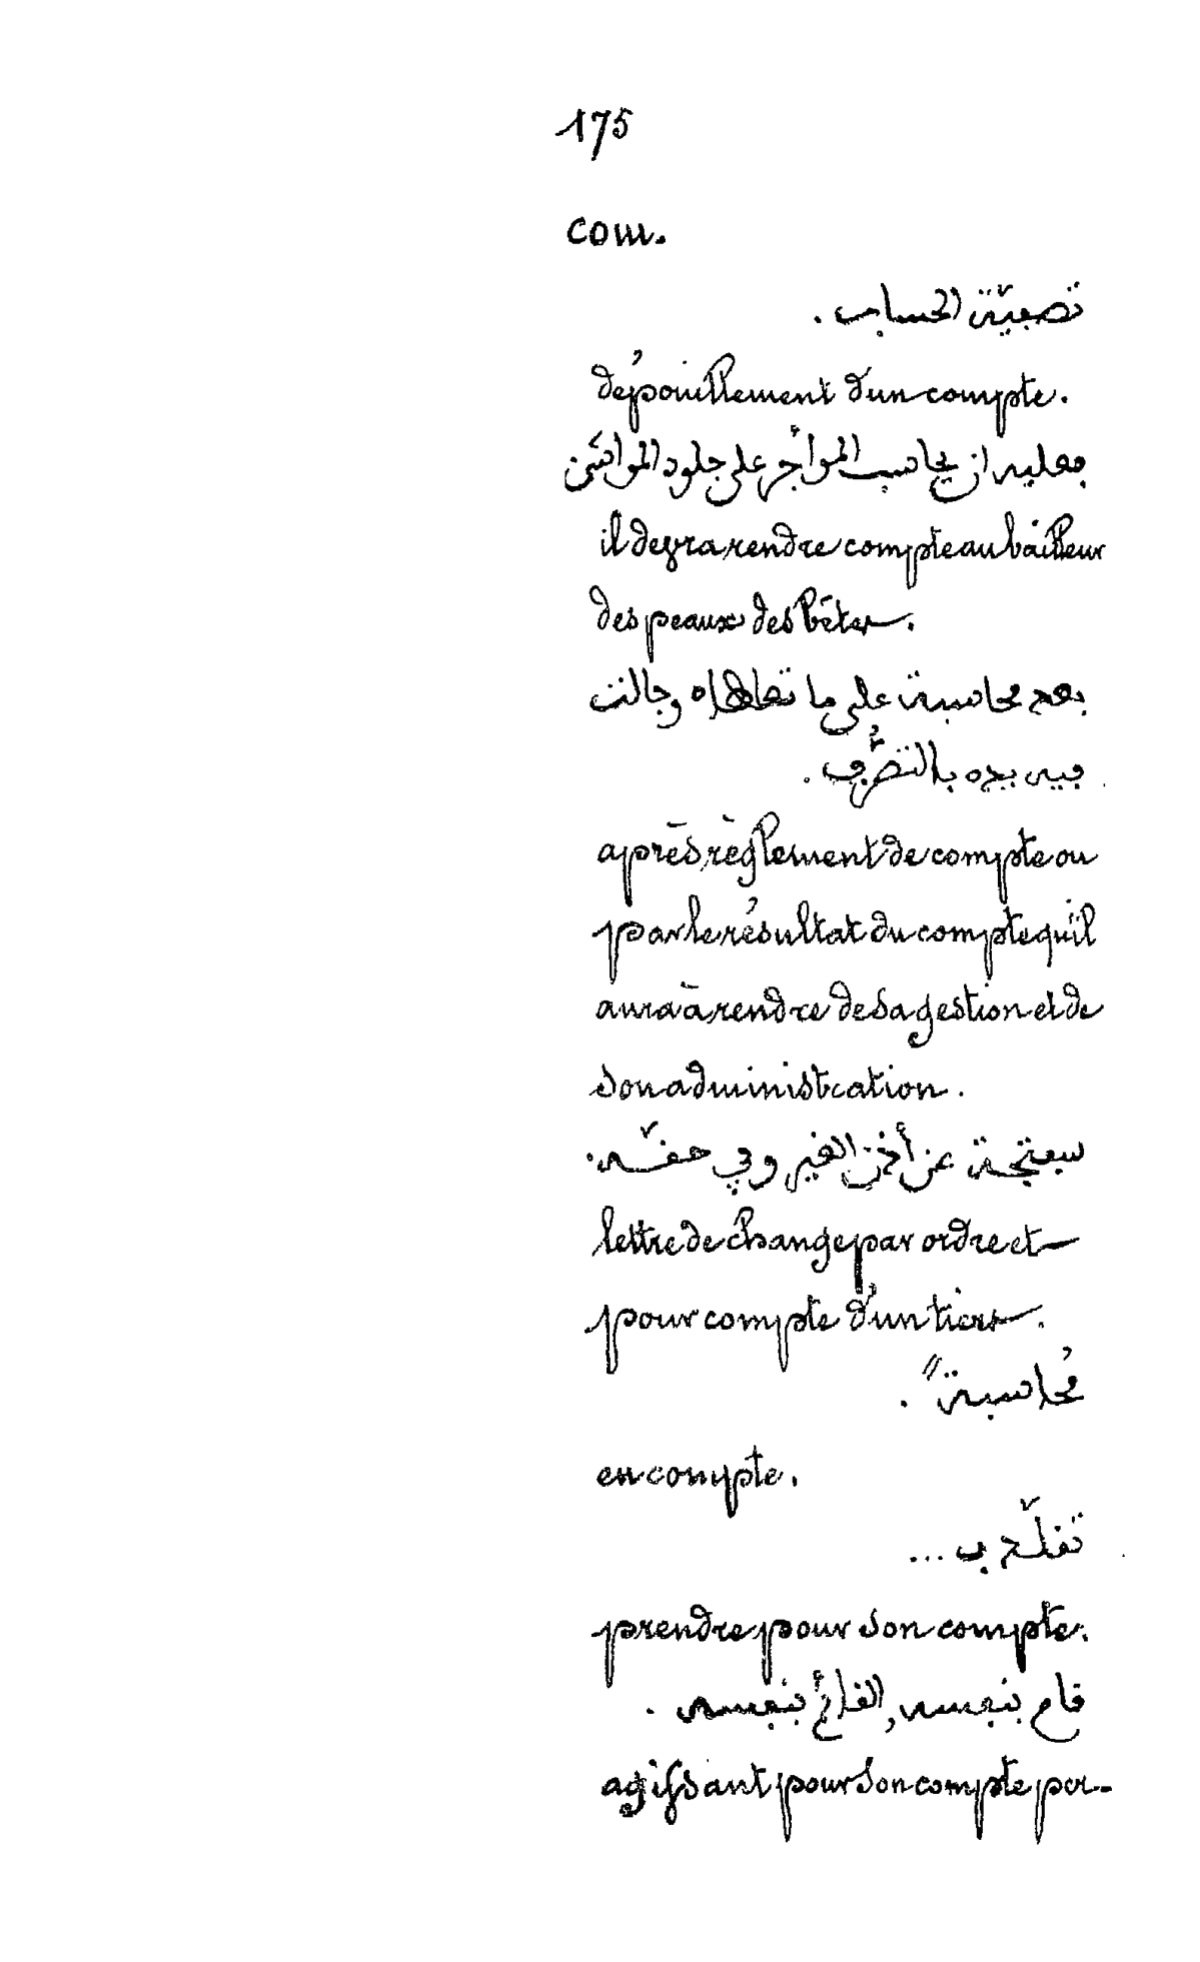 175
com.
تصفيّة الحساب.
dépouillement d'un compte.
فعليه ان يحاسب المواجر على جلود المواشى
il devra rendre compte au bailleur
des peaux des bêtes.
بعد محاسبة على ما تعاطاه وجالت
فيه يده بالتصرُّف.
après règlement de compte ou
par le résultat du compte qu'il
aura à rendre de sa gestion et de
son administration.
سفتجة عن أذن الغير وفي حقّه.
lettre de change par ordre et
pour compte d'un tiers.
مُحاسبةً.
en compte.
تقلّد ب...
prendre pour son compte.
قام بنفسه, القائم بنفسه.
agissant pour son compte per-